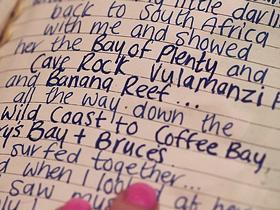 little darli
back to South Africa
with me and showed
her the Bay of Plenty and
Cave Rock Vulamanzi
and Banana Reef...
all the way down the
Wild Coast to Coffee Bay,
Bay + Bruces
surfed together...
d when I loo d at he
saw my